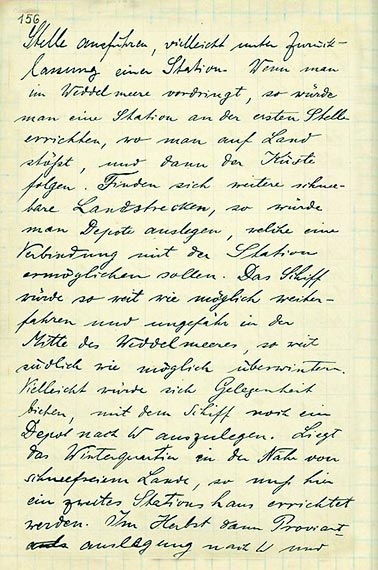 156
Stelle ausführen, vielleicht unter Zurück-
lassung einer Station. Wenn man
im Weddelmeere vordringt, so würde
man eine Station an der ersten Stelle
errichten, wo man auf Land
stößt, und dann der Küste
folgen. Finden sich weitere schnee-
bare Landstrecken, so würde
man Depots auslegen, welche eine
Verbindung mit der Station
ermöglichen sollen. Das Schiff
würde so weit wie möglich weiter-
fahren und ungefähr in der
Mitte des Weddelmeeres, so weit
südlich wie möglich überwintern.
Vielleicht würde sich Gelegenheit
bieten, mit dem Schiff noch ein
Depot nach W auszulegen. Liegt
das Winterquartier in der Nähe von
schneefreiem Lande, so muß hier
ein zweites Stationshaus errichtet
werden. Im Herbst dann Proviant-
auslegung nach W und